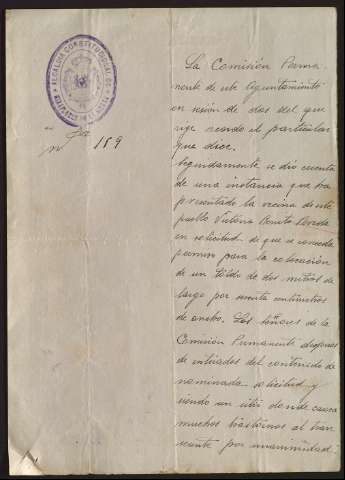 ALCALDIA CONSTITUCIONAL DE
nº 189
La Comisión Perma-
nente de este Ayuntamiento
en sesión de dos del que
rije acordó el particular
que dice.
Seguidamente se dio cuenta
de una instancia que ha
presentado la vecina de este
pueblo Victoria Benito
en solicitud de que se conceda
permiso para la colocación
de un toldo de dos metros de
largo por sesenta centímetros
de ancho. Los señores de la
Comisión Permanente después
de enterados del contenido de
nominada solicitud y
siendo un sitio donde causa
muchos trastornos al tran-
seunte por unanimidad